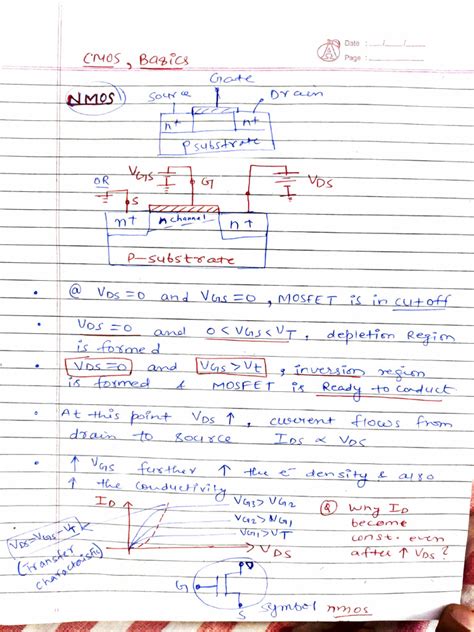 Date : __/__/__
Page :
CMOS, Basics
Gate
NMOS
Source
Drain
n+
n+
P substrate
OR
VGS
G
VDS
S
n+
n channel
n+
P-substrate
@ VDS=0 and VGS=0, MOSFET is in cutoff
VDS=0 and 0<VGS<VT, depletion Region
is formed
VDS=0 and VGS>Vt, inversion region
is formed & MOSFET is Ready to conduct
At this point VDS ↑, current flows from
drain to source IDS ∝ VDS
↑ VGS further ↑ the e- density & also
↑ the conductivity
ID
VG3>VG2
VG2>VG1
VG1>VT
VDS
VDS=VGS-VT
(Transfer
characteristic)
Q Why ID
become
const. even
after ↑ VDS?
G
D
S
Symbol nmos